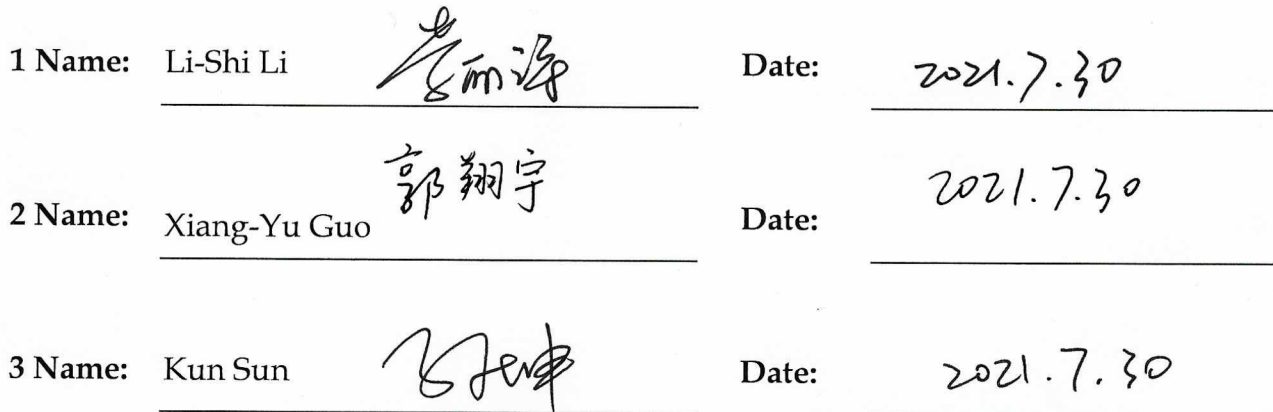 1 Name: Li-Shi Li 李丽诗 Date: 2021.7.30
2 Name: Xiang-Yu Guo 郭翔宇 Date: 2021.7.30
3 Name: Kun Sun 孙坤 Date: 2021.7.30